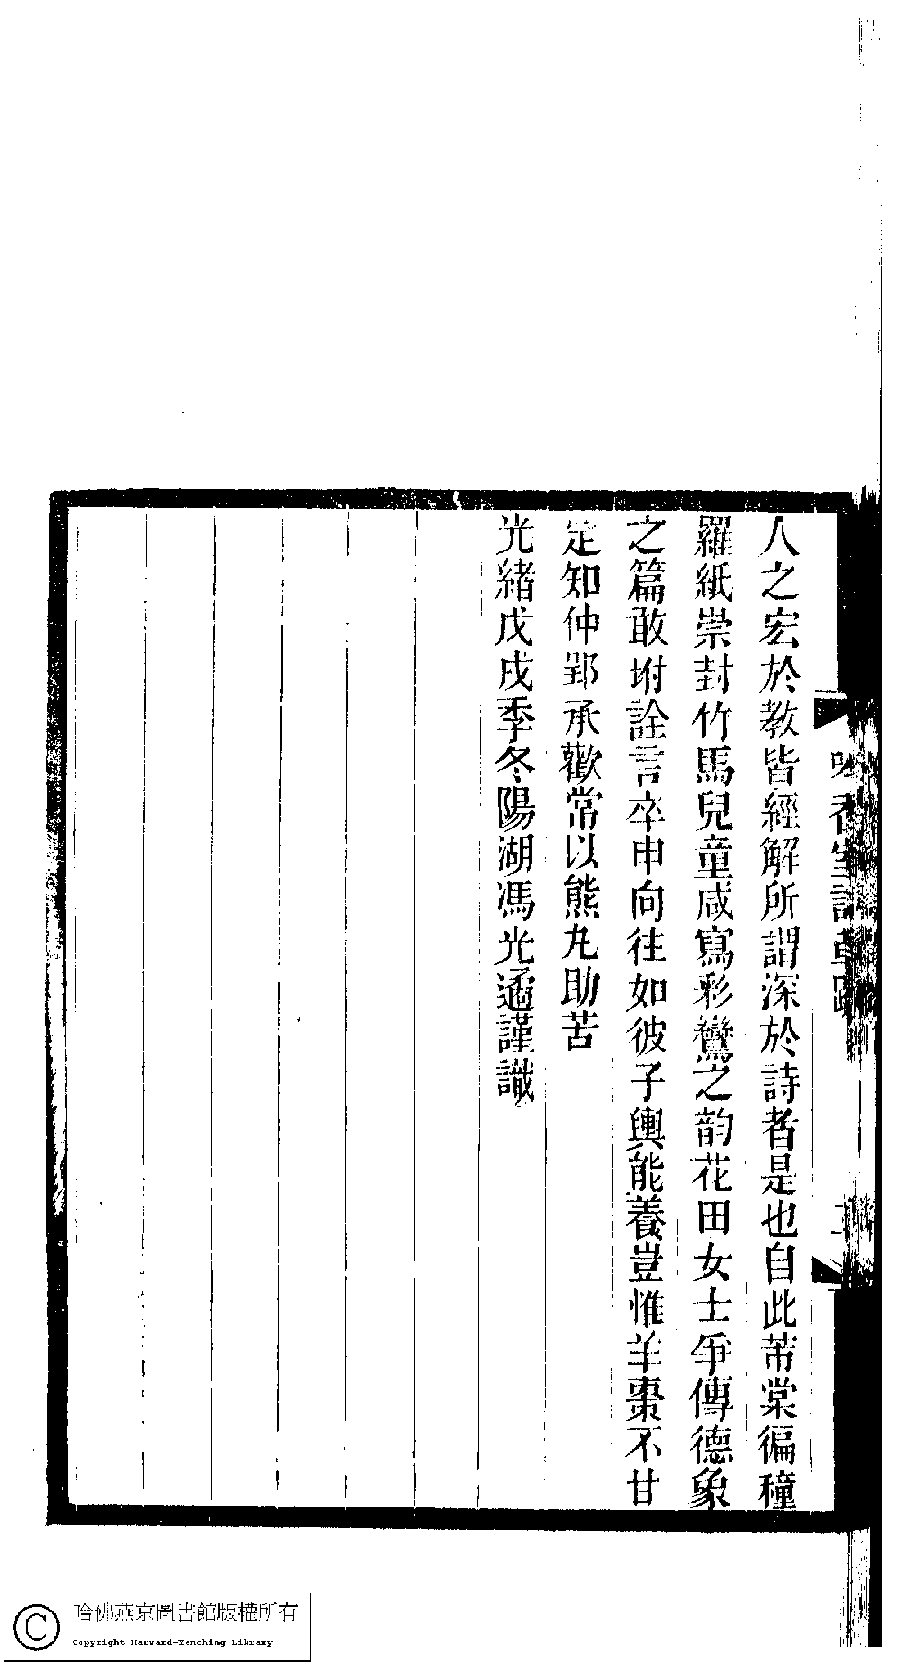 吟香室詩草跋
二
人之宏於教皆經解所謂深於詩者是也自此芾棠徧種
羅紙崇封竹馬兒童咸寫彩鸞之韵花田女士爭傳德象
之篇敢坿詮言卒申向往如彼子輿能養豈惟羊棗不甘
定知仲郢承歡常以熊丸助苦
光緒戊戌季冬陽湖馮光遹謹識
哈佛燕京圖書館版權所有
Copyright Harvard-Yenching Library